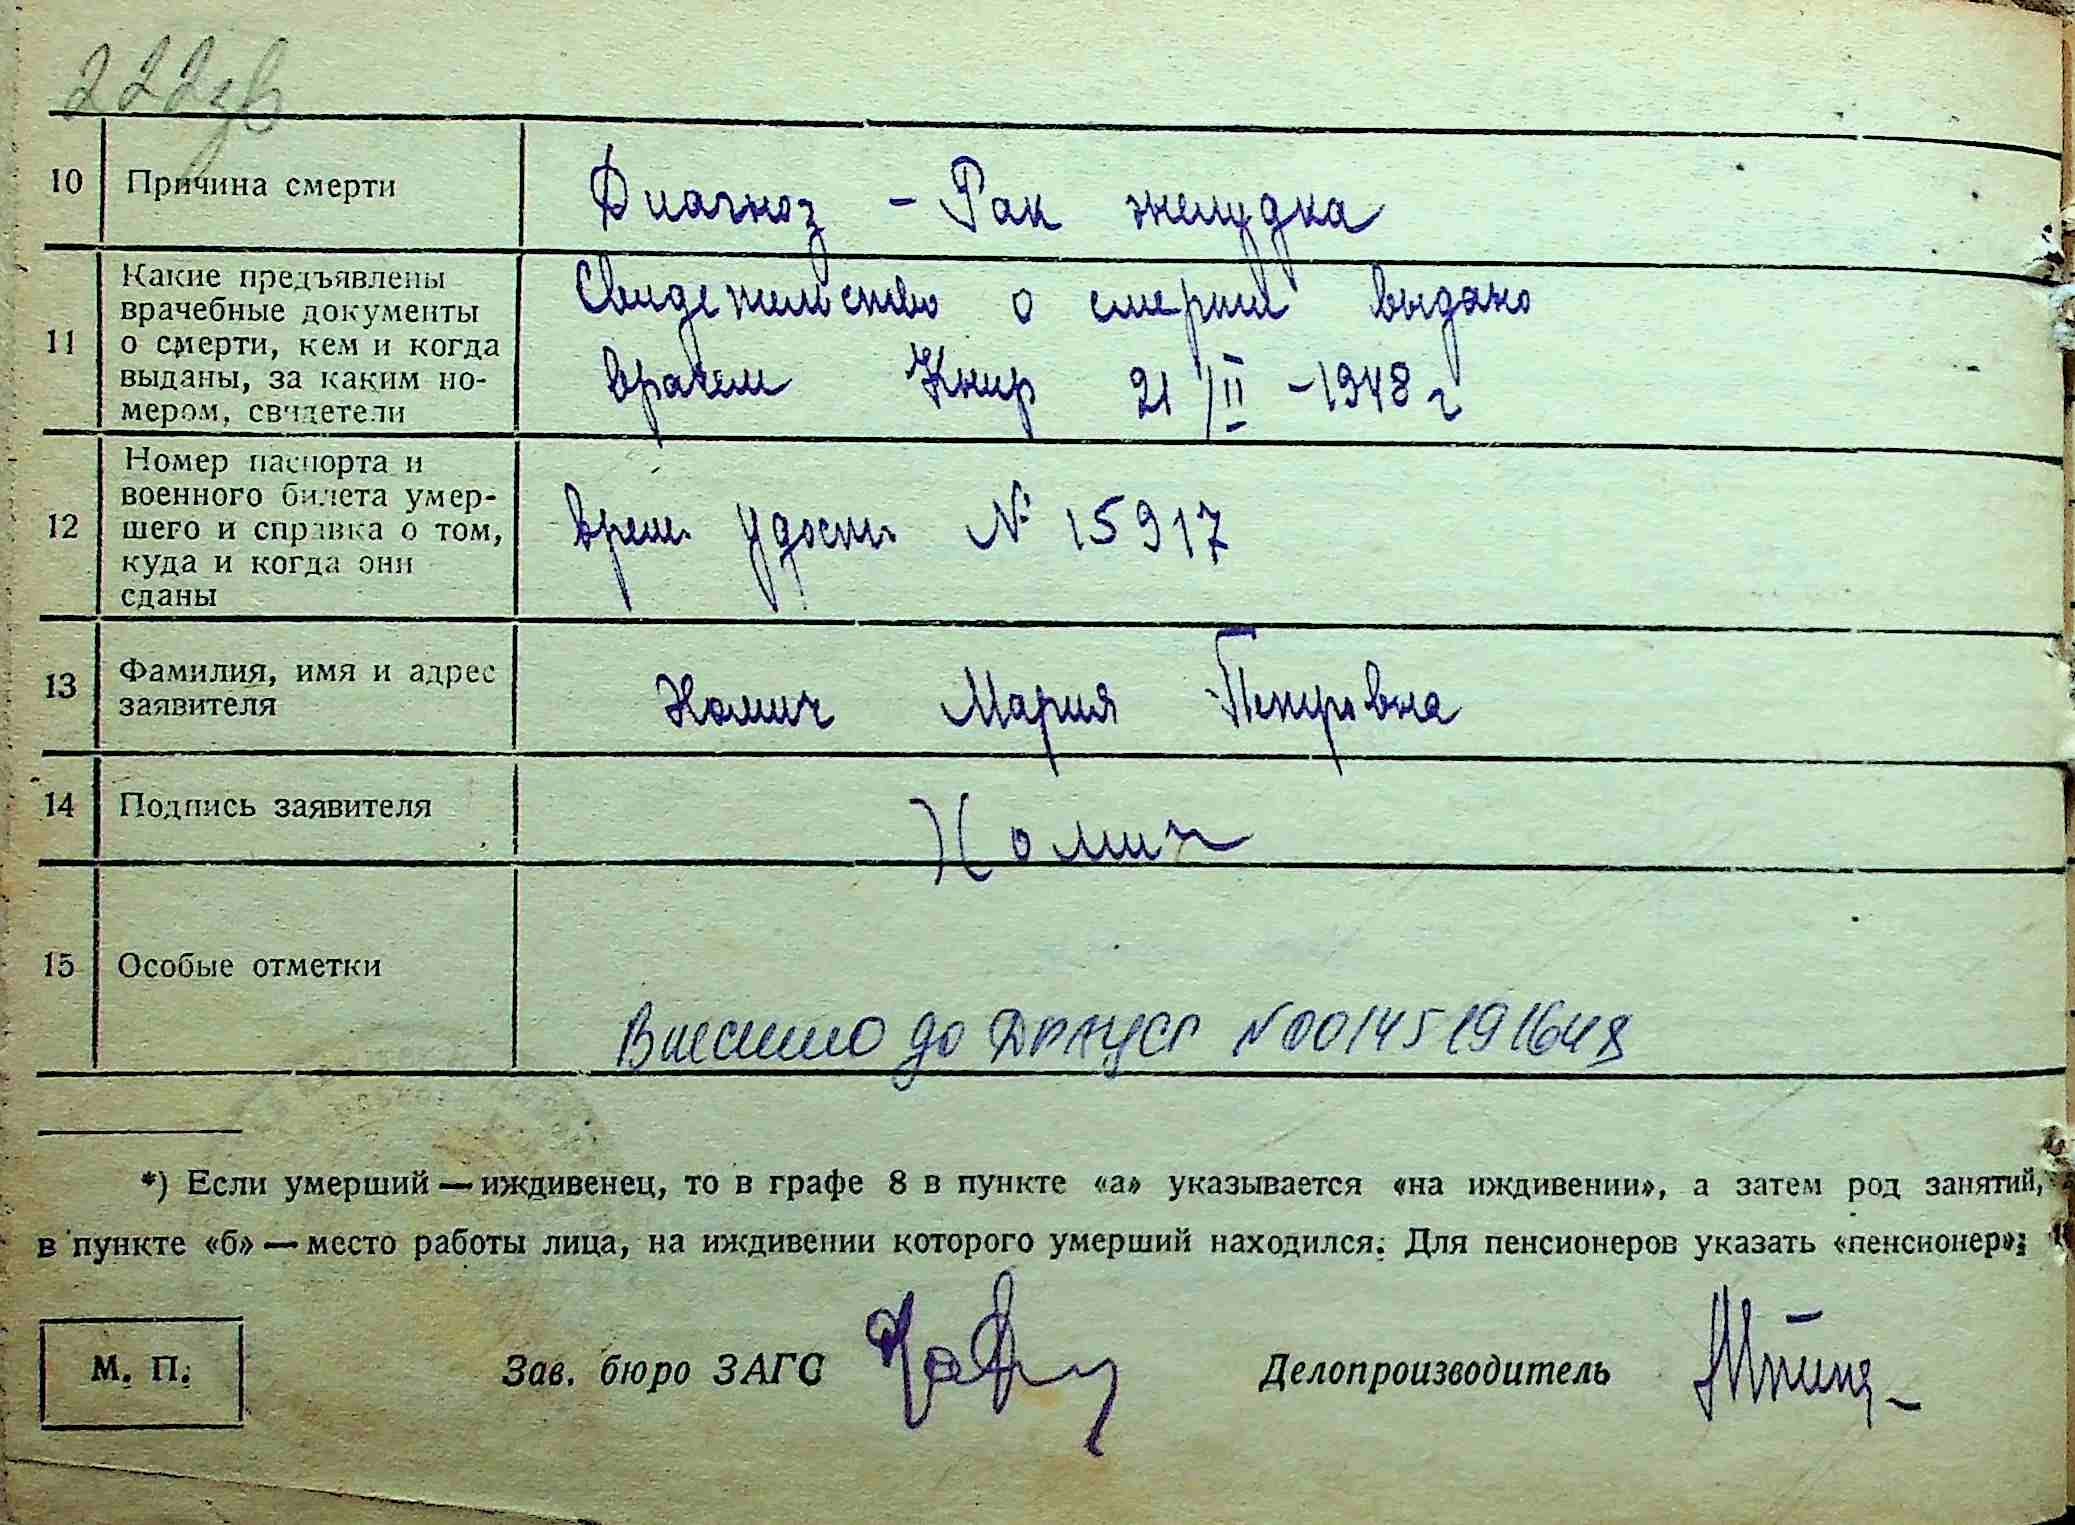 222зв
10 Причина смерти Диагноз - Рак желудка
11 Какие предъявлены врачебные документы о смерти, кем и когда выданы, за каким но-мером, свидетели
Свидетельство о смерти выдано
врачем Книр 21/II - 1948 г
12 Номер паспорта и военного билета умер-шего и справка о том, куда и когда они сданы
врем. удост. № 15917
13 Фамилия, имя и адрес заявителя
Хомич Мария Петровна
14 Подпись заявителя Хомич
15 Особые отметки
Внесено до ДРАЦСГ №00145191648
*) Если умерший — иждивенец, то в графе 8 в пункте «а» указывается «на иждивении», а затем род занятий,
в пункте «б» — место работы лица, на иждивении которого умерший находился. Для пенсионеров указать «пенсионер»;
М. П. Зав. бюро ЗАГС Делопроизводитель